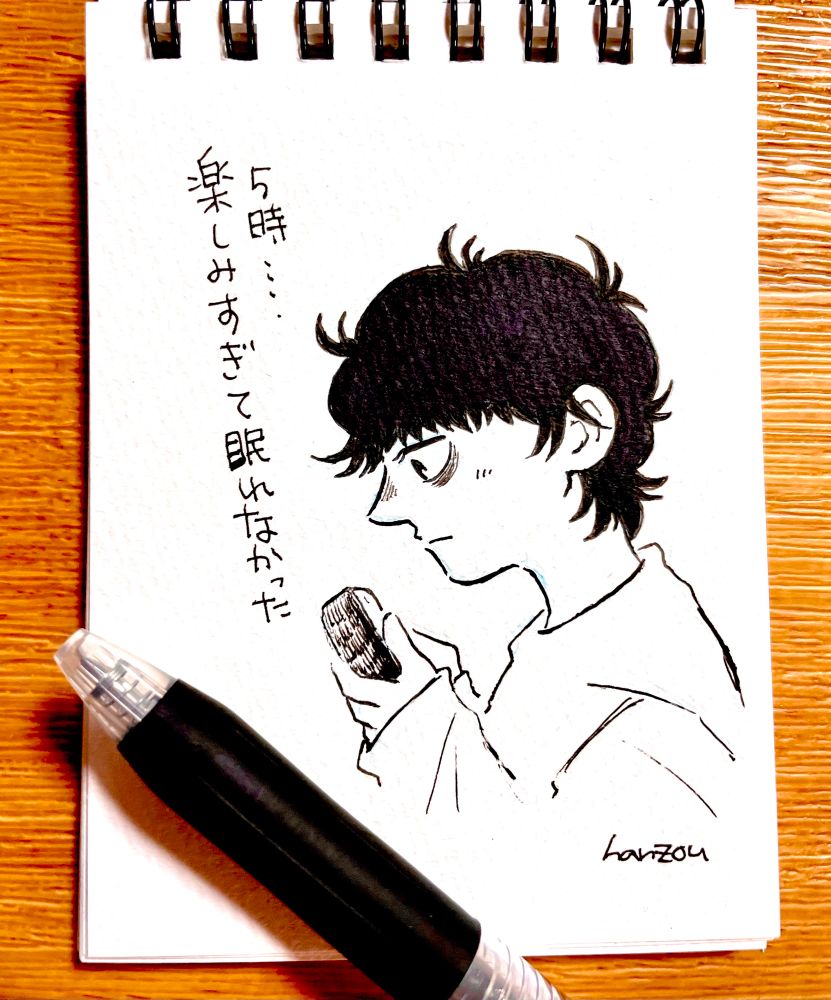 5時…
楽しみすぎて眠れなかった
hanzou